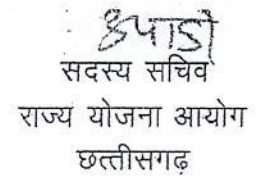 सदस्य सचिव
राज्य योजना आयोग
छत्तीसगढ़